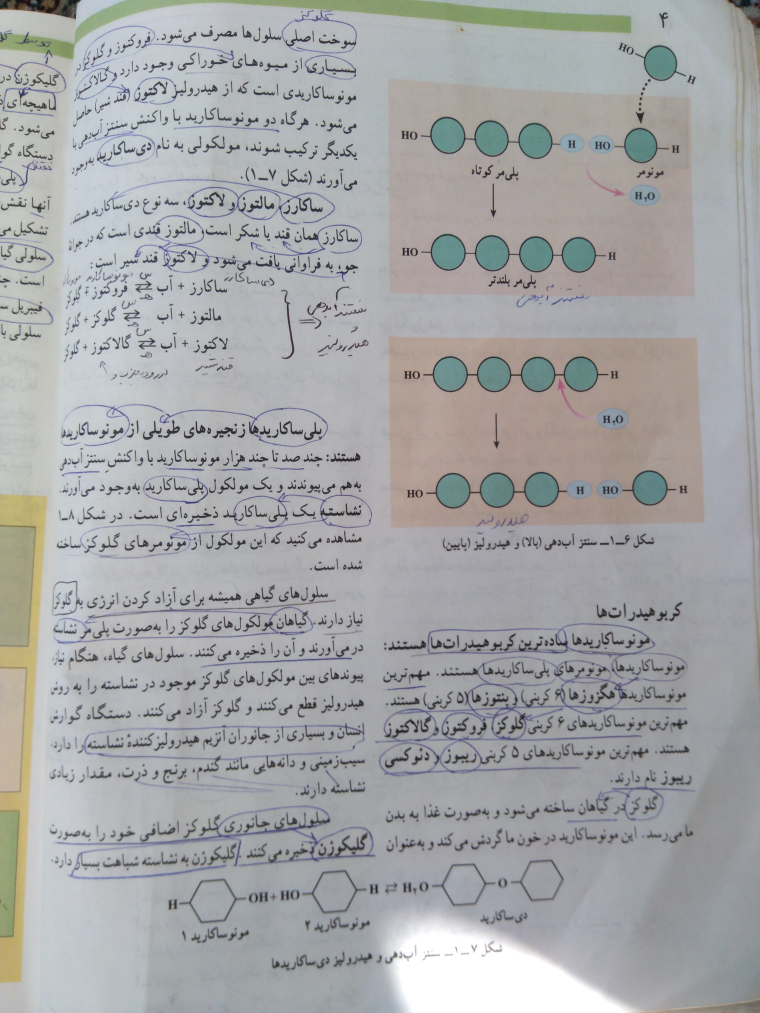 ۴
HO
H
HO
H
HO
H
مونومر
پلی‌مر کوتاه
H۲O
HO
H
پلی‌مر بلندتر
سنتز آبدهی
HO
H
H۲O
HO
H
HO
H
هیدرولیز
شکل ۶ــ۱ــ سنتز آب‌دهی (بالا) و هیدرولیز (پایین)
کربوهیدرات‌ها
مونوساکاریدها ساده‌ترین کربوهیدرات‌ها هستند:
مونوساکاریدها، مونومرهای پلی‌ساکاریدها هستند. مهم‌ترین
مونوساکاریدها هگزوزها (۶ کربنی) و پنتوزها (۵ کربنی) هستند.
مهم‌ترین مونوساکاریدهای ۶ کربنی گلوکز، فروکتوز و گالاکتوز
هستند. مهم‌ترین مونوساکاریدهای ۵ کربنی ریبوز و دئوکسی
ریبوز نام دارند.
گلوکز در گیاهان ساخته می‌شود و به‌صورت غذا به بدن
ما می‌رسد. این مونوساکارید در خون ما گردش می‌کند و به‌عنوان
گلوکز
سوخت اصلی سلول‌ها مصرف می‌شود. فروکتوز و گلوکز در
بسیاری از میوه‌های خوراکی وجود دارد و گالاکتوز
مونوساکاریدی است که از هیدرولیز لاکتوز (قند شیر) حاصل
می‌شود. هرگاه دو مونوساکارید با واکنش سنتز آب‌دهی با
یکدیگر ترکیب شوند، مولکولی به نام دی‌ساکارید به‌وجود
می‌آورند (شکل ۷ــ۱).
ساکارز، مالتوز و لاکتوز، سه نوع دی‌ساکارید هستند.
ساکارز همان قند یا شکر است، مالتوز قندی است که در جوانهٔ
جو، به فراوانی یافت می‌شود و لاکتوز قند شیر است:
دی‌ساکارید
ساکارز + آب ⇄ فروکتوز + گلوکز
مالتوز + آب ⇄ گلوکز + گلوکز
لاکتوز + آب ⇄ گالاکتوز + گلوکز
سنتز آبدهی
هیدرولیز
قند شیر
پلی‌ساکاریدها زنجیره‌های طویلی از مونوساکاریدها
هستند: چند صد تا چند هزار مونوساکارید با واکنش سنتز آب‌دهی
به‌هم می‌پیوندند و یک مولکول پلی‌ساکارید به‌وجود می‌آورند.
نشاسته یک پلی‌ساکارید ذخیره‌ای است. در شکل ۸ــ۱
مشاهده می‌کنید که این مولکول از مونومرهای گلوکز ساخته
شده است.
سلول‌های گیاهی همیشه برای آزاد کردن انرژی به گلوکز
نیاز دارند. گیاهان مولکول‌های گلوکز را به‌صورت پلی‌مر نشاسته
در می‌آورند و آن را ذخیره می‌کنند. سلول‌های گیاه، هنگام نیاز،
پیوندهای بین مولکول‌های گلوکز موجود در نشاسته را به روش
هیدرولیز قطع می‌کنند و گلوکز آزاد می‌کنند. دستگاه گوارش
انسان و بسیاری از جانوران آنزیم هیدرولیزکنندهٔ نشاسته را دارد.
سیب‌زمینی و دانه‌هایی مانند گندم، برنج و ذرت، مقدار زیادی
نشاسته دارند.
سلول‌های جانوری گلوکز اضافی خود را به‌صورت
گلیکوژن ذخیره می‌کنند. گلیکوژن به نشاسته شباهت بسیار دارد.
H
OH + HO
H ⇄ H۲O
O
مونوساکارید ۱
مونوساکارید ۲
دی‌ساکارید
شکل ۷ــ۱ــ سنتز آب‌دهی و هیدرولیز دی‌ساکاریدها
توسط
گلیکوژن در
ماهیچه‌ای
می‌شود.
دستگاه
آنها نقش
تشکیل می
سلولی
است.
فیبریل
سلولی